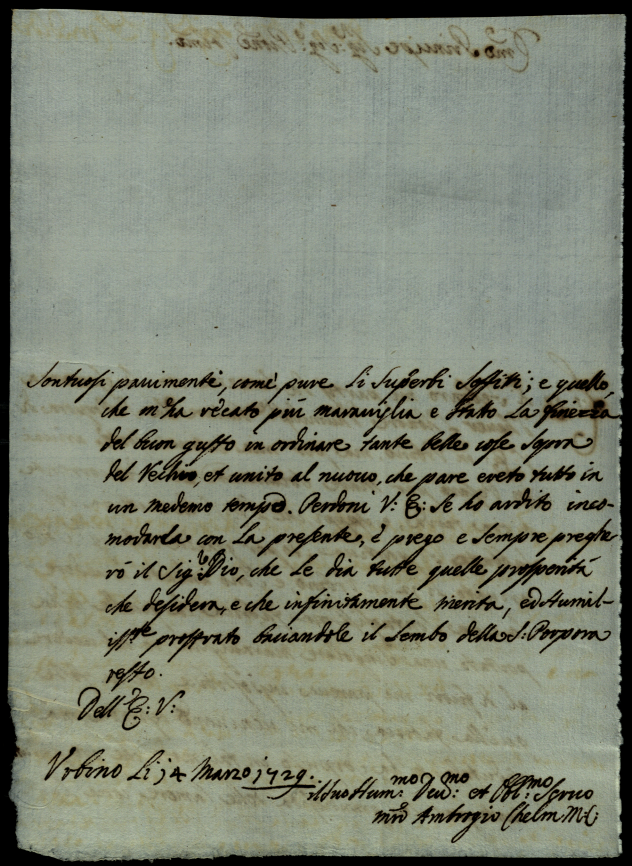 Sontuosi pauimenti, come pure li superbi soffitti; e quello
che m'ha recato più marauiglia e stato la finezza
del buon gusto in ordinare tante belle cose sopra
del Vechio, et unito al nuouo, che pare ereto tutto in
un medemo tempo. Perdoni V: E: se ho ardito inco-
modarla con la presente, è prego e sempre preghe
rò il Sig.re Dio, che le dia tutte quelle prosperità
che desidera, e che infinitamente merita, ed humil-
iss.te prostrato baciandole il lembo della S: Porpora
resto.
Dell' E: V:
Vrbino li 14 Marzo 1729.
il suo Hum.mo Deu.mo: et Obl.mo: Seruo
Ambrogio Chelm M: C: